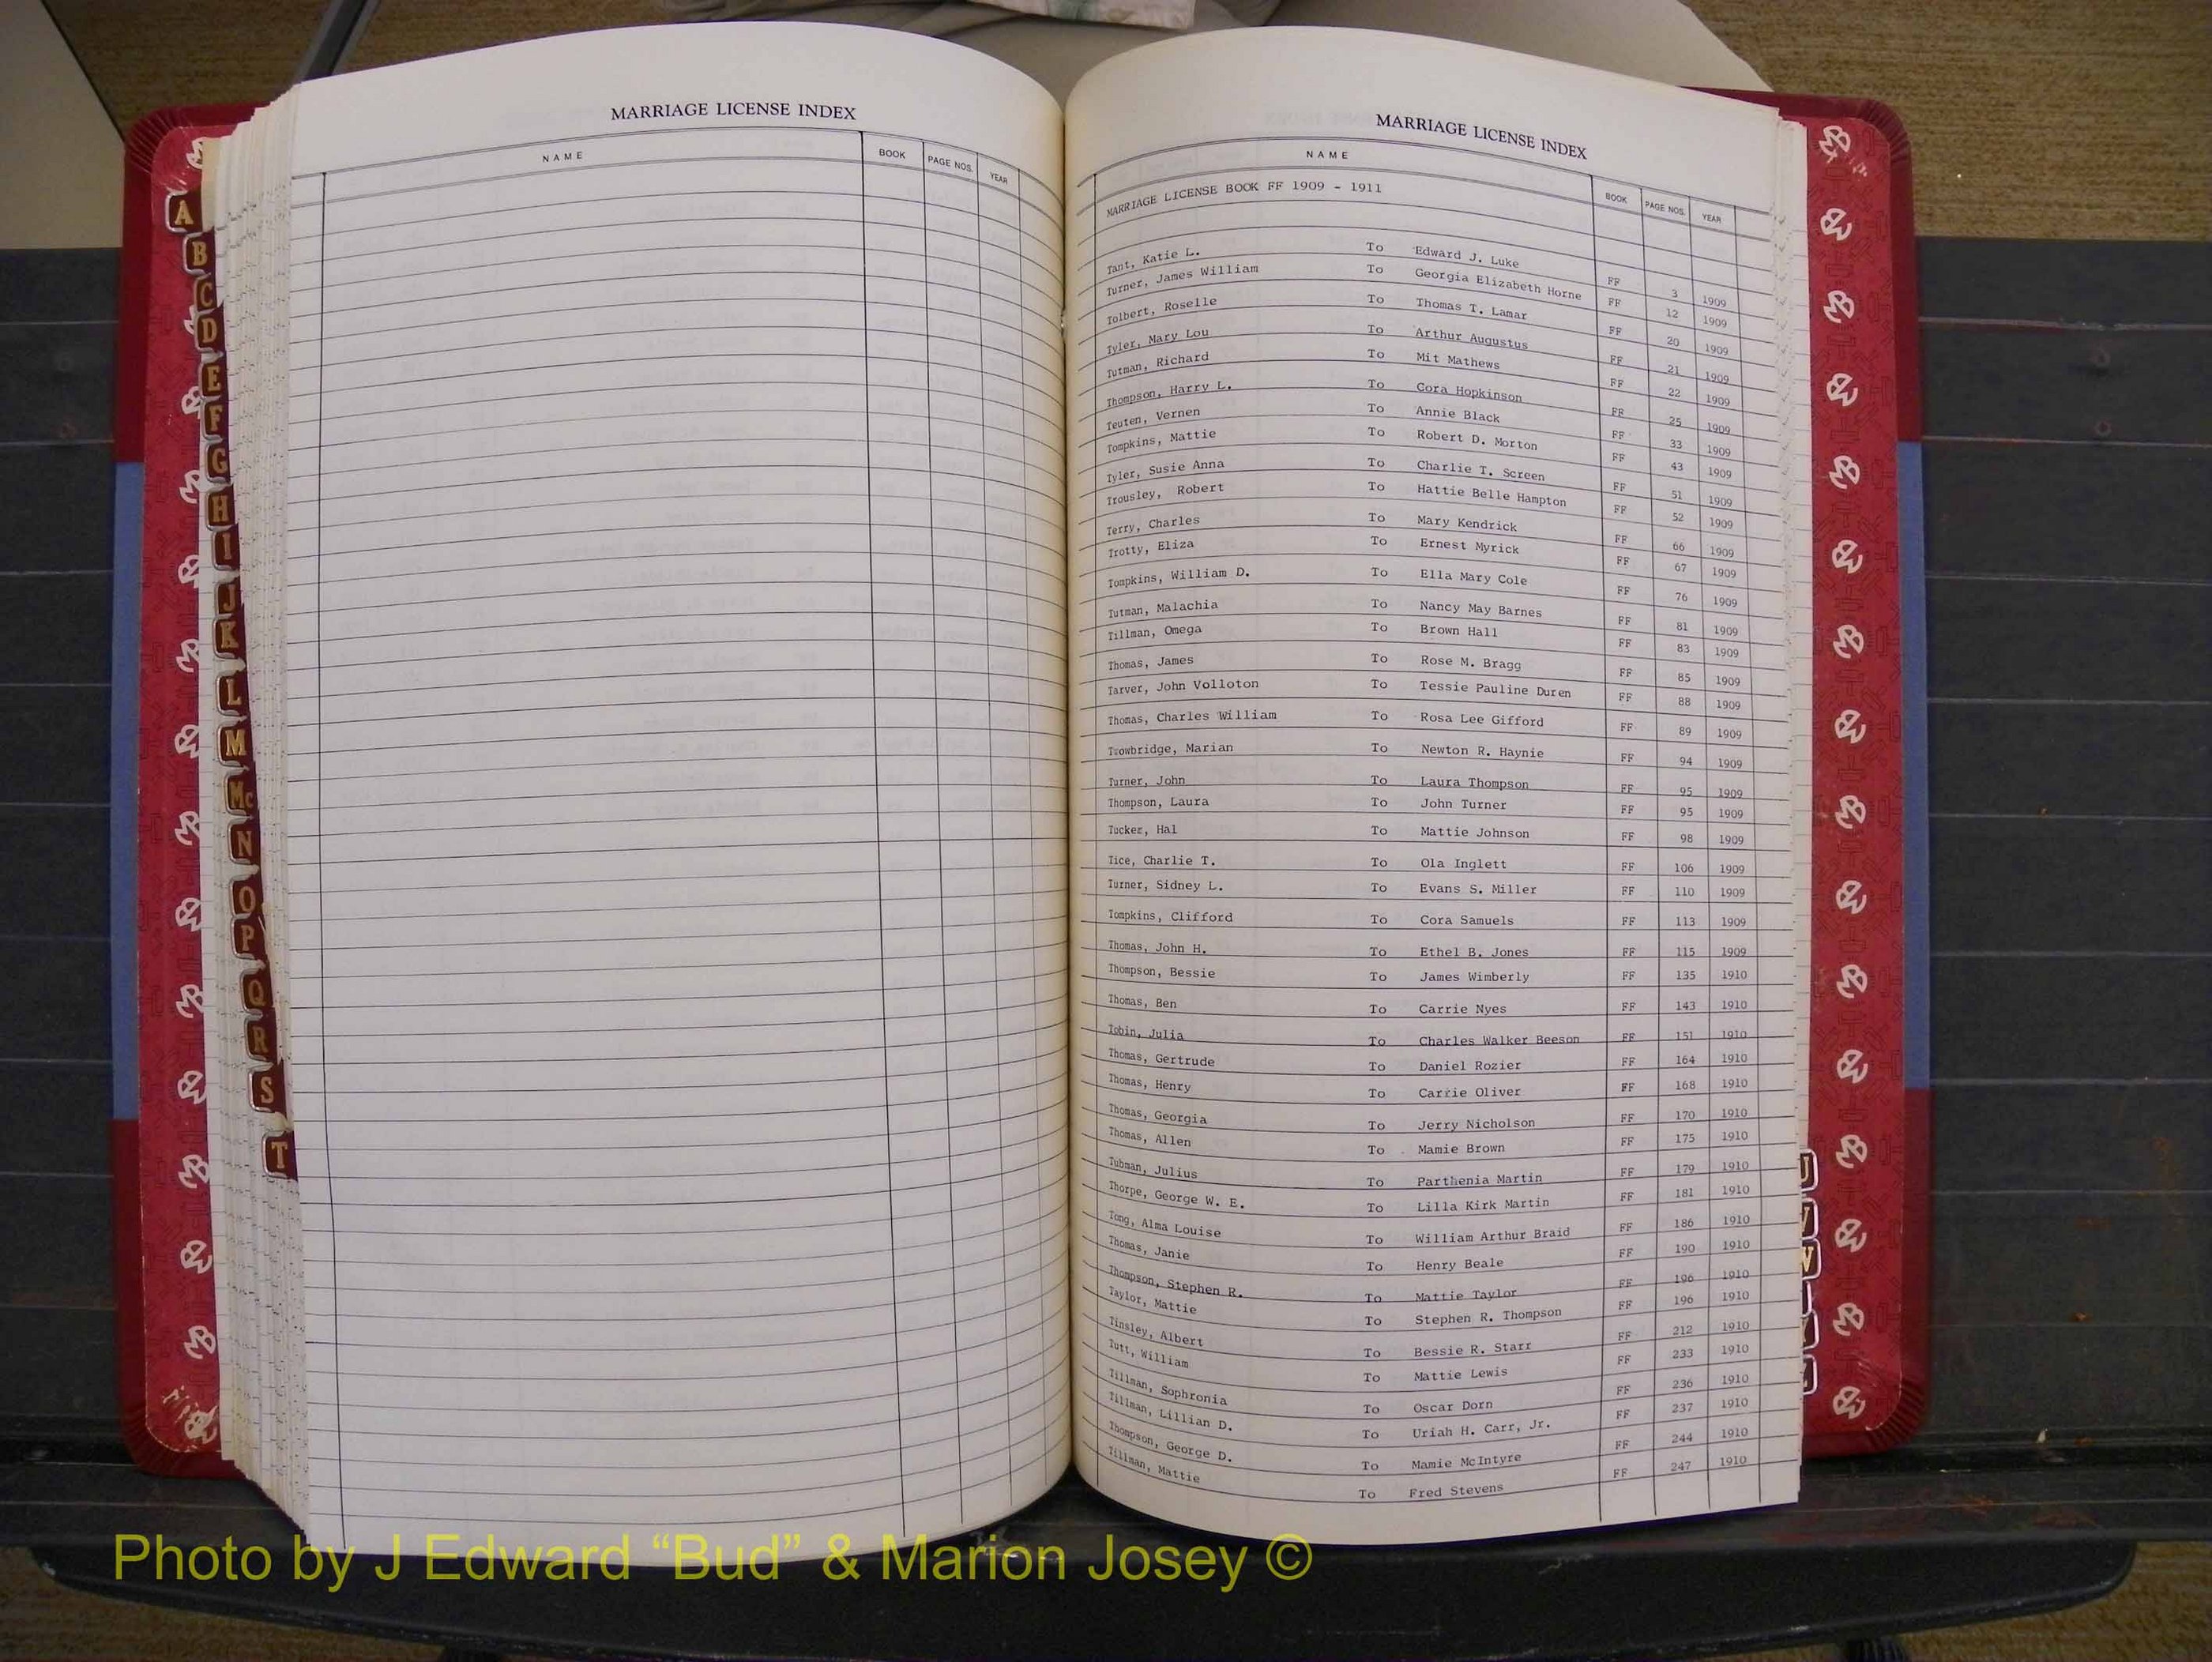 MARRIAGE LICENSE INDEX
NAME BOOK PAGE NOS. YEAR
A
B
C
D
E
F
G
H
I
J
K
L
M
Mc
N
O
P
Q
R
S
T
MARRIAGE LICENSE INDEX
NAME BOOK PAGE NOS. YEAR
MARRIAGE LICENSE BOOK FF 1909 - 1911
Tant, Katie L. To Edward J. Luke FF 3 1909
Turner, James William To Georgia Elizabeth Horne FF 12 1909
Tolbert, Roselle To Thomas T. Lamar FF 20 1909
Tyler, Mary Lou To Arthur Augustus FF 21 1909
Tutman, Richard To Mit Mathews FF 22 1909
Thompson, Harry L. To Cora Hopkinson FF 25 1909
Teuten, Vernen To Annie Black FF 33 1909
Tompkins, Mattie To Robert D. Morton FF 43 1909
Tyler, Susie Anna To Charlie T. Screen FF 51 1909
Trousley, Robert To Hattie Belle Hampton FF 52 1909
Terry, Charles To Mary Kendrick FF 66 1909
Trotty, Eliza To Ernest Myrick FF 67 1909
Tompkins, William D. To Ella Mary Cole FF 76 1909
Tutman, Malachia To Nancy May Barnes FF 81 1909
Tillman, Omega To Brown Hall FF 83 1909
Thomas, James To Rose M. Bragg FF 85 1909
Tarver, John Volloton To Tessie Pauline Duren FF 88 1909
Thomas, Charles William To Rosa Lee Gifford FF 89 1909
Trowbridge, Marian To Newton R. Haynie FF 94 1909
Turner, John To Laura Thompson FF 95 1909
Thompson, Laura To John Turner FF 95 1909
Tucker, Hal To Mattie Johnson FF 98 1909
Tice, Charlie T. To Ola Inglett FF 106 1909
Turner, Sidney L. To Evans S. Miller FF 110 1909
Tompkins, Clifford To Cora Samuels FF 113 1909
Thomas, John H. To Ethel B. Jones FF 115 1909
Thompson, Bessie To James Wimberly FF 135 1910
Thomas, Ben To Carrie Nyes FF 143 1910
Tobin, Julia To Charles Walker Beeson FF 151 1910
Thomas, Gertrude To Daniel Rozier FF 164 1910
Thomas, Henry To Carrie Oliver FF 168 1910
Thomas, Georgia To Jerry Nicholson FF 170 1910
Thomas, Allen To Mamie Brown FF 175 1910
Tubman, Julius To Parthenia Martin FF 179 1910
Thorpe, George W. E. To Lilla Kirk Martin FF 181 1910
Tong, Alma Louise To William Arthur Braid FF 186 1910
Thomas, Janie To Henry Beale FF 190 1910
Thompson, Stephen R. To Mattie Taylor FF 196 1910
Taylor, Mattie To Stephen R. Thompson FF 196 1910
Tinsley, Albert To Bessie R. Starr FF 212 1910
Tutt, William To Mattie Lewis FF 233 1910
Tillman, Sophronia To Oscar Dorn FF 236 1910
Tillman, Lillian D. To Uriah H. Carr, Jr. FF 237 1910
Thompson, George D. To Mamie McIntyre FF 244 1910
Tillman, Mattie To Fred Stevens FF 247 1910
U
V
W
Photo by J Edward “Bud” & Marion Josey ©